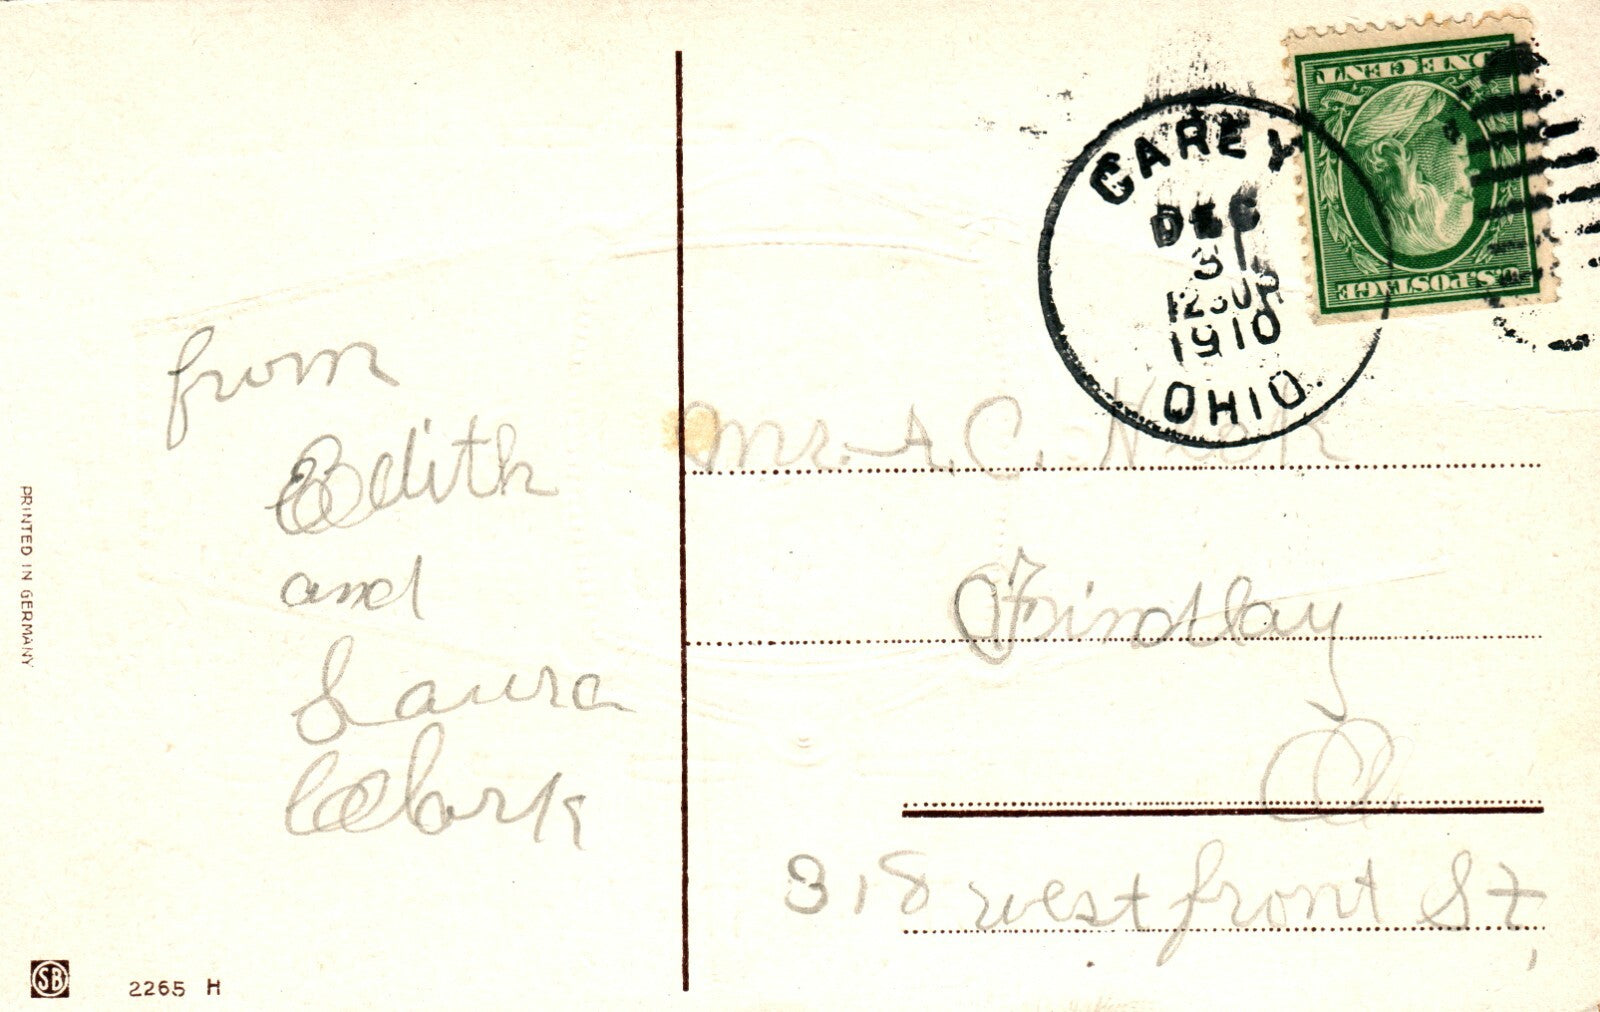 from
Edith
and
Laura
Clark
PRINTED IN GERMANY
SB
2265 H
ONE CENT
U.S. POSTAGE
CAREY
DEC
31
1910
OHIO.
Mr. A. C.
Findlay
O.
318 west front St,